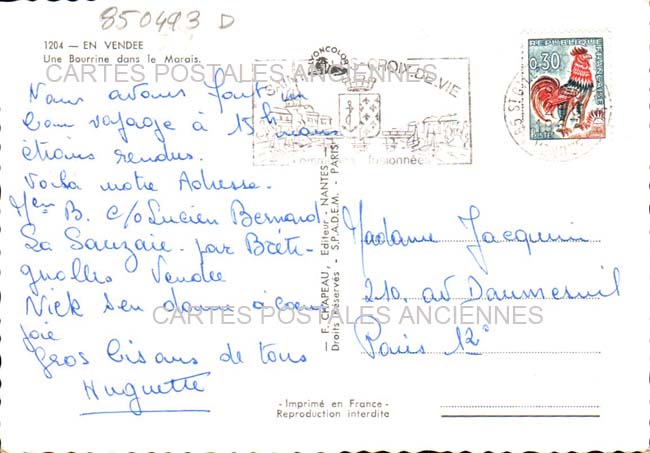 850493 D
1204 — EN VENDEE
Une Bourrine dans le Marais.
CARTES POSTALES ANCIENNES
Nous avons fait un
bon voyage à 15h nous
étions rendus.
Voila notre Adresse.
Men B. C/o Lucien Bernard
La Sauzaie par Bréti-
gnolles Vendée
Nick s'en donne à coeur
joie
Gros bisous de tous
Huguette
F. CHAPEAU, Editeur - NANTES
Droits réservés - S.P.A.D.E.M. - PARIS
CROIX-DE-VIE
fusionnées
REPUBLIQUE FRANCAISE
0,30
POSTES
Madame Jacquin
210, av Daumesnil
Paris 12e
CARTES POSTALES ANCIENNES
- Imprimé en France -
Reproduction interdite